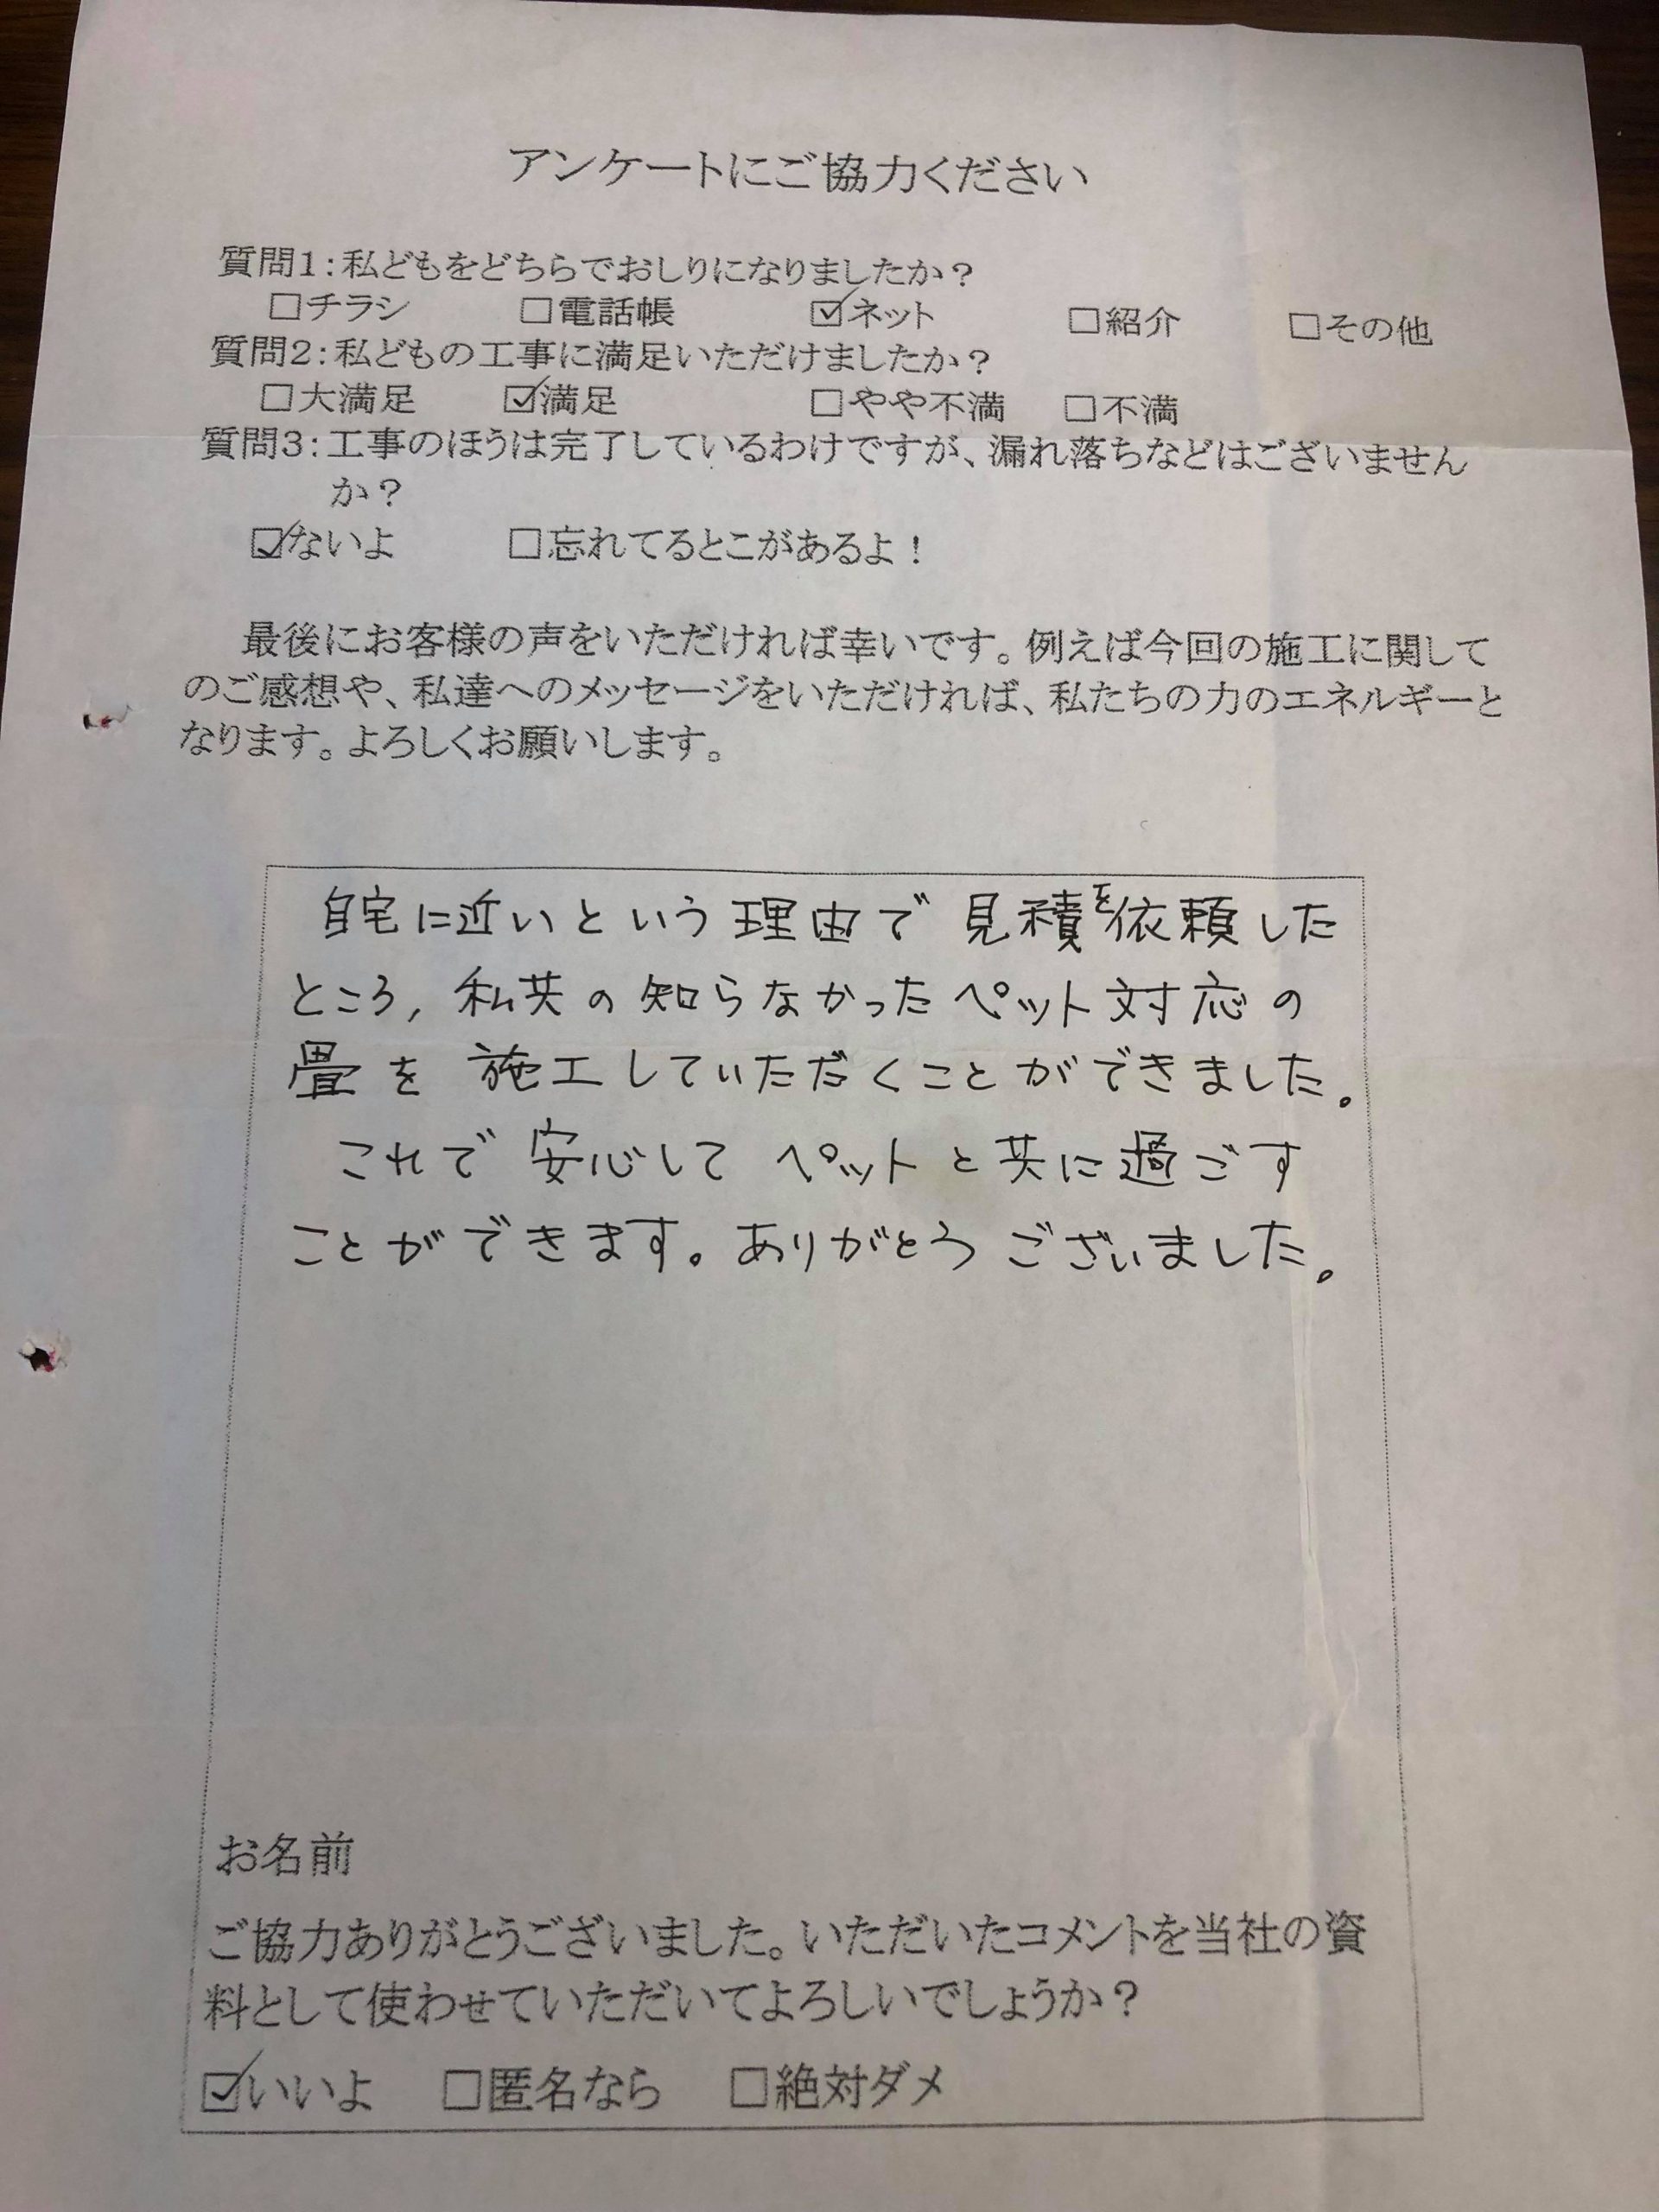 アンケートにご協力ください
質問1:私どもをどちらでおしりになりましたか?
□チラシ □電話帳 ☑ネット □紹介 □その他
質問2:私どもの工事に満足いただけましたか?
□大満足 ☑満足 □やや不満 □不満
質問3:工事のほうは完了しているわけですが、漏れ落ちなどはございません
か?
☑ないよ □忘れてるとこがあるよ!
最後にお客様の声をいただければ幸いです。例えば今回の施工に関して
のご感想や、私達へのメッセージをいただければ、私たちの力のエネルギーと
なります。よろしくお願いします。
自宅に近いという理由で見積を依頼した
ところ,私共の知らなかったペット対応の
畳を施工していただくことができました。
これで安心してペットと共に過ごす
ことができます。ありがとうございました。
お名前
ご協力ありがとうございました。いただいたコメントを当社の資
料として使わせていただいてよろしいでしょうか?
☑いいよ □匿名なら □絶対ダメ